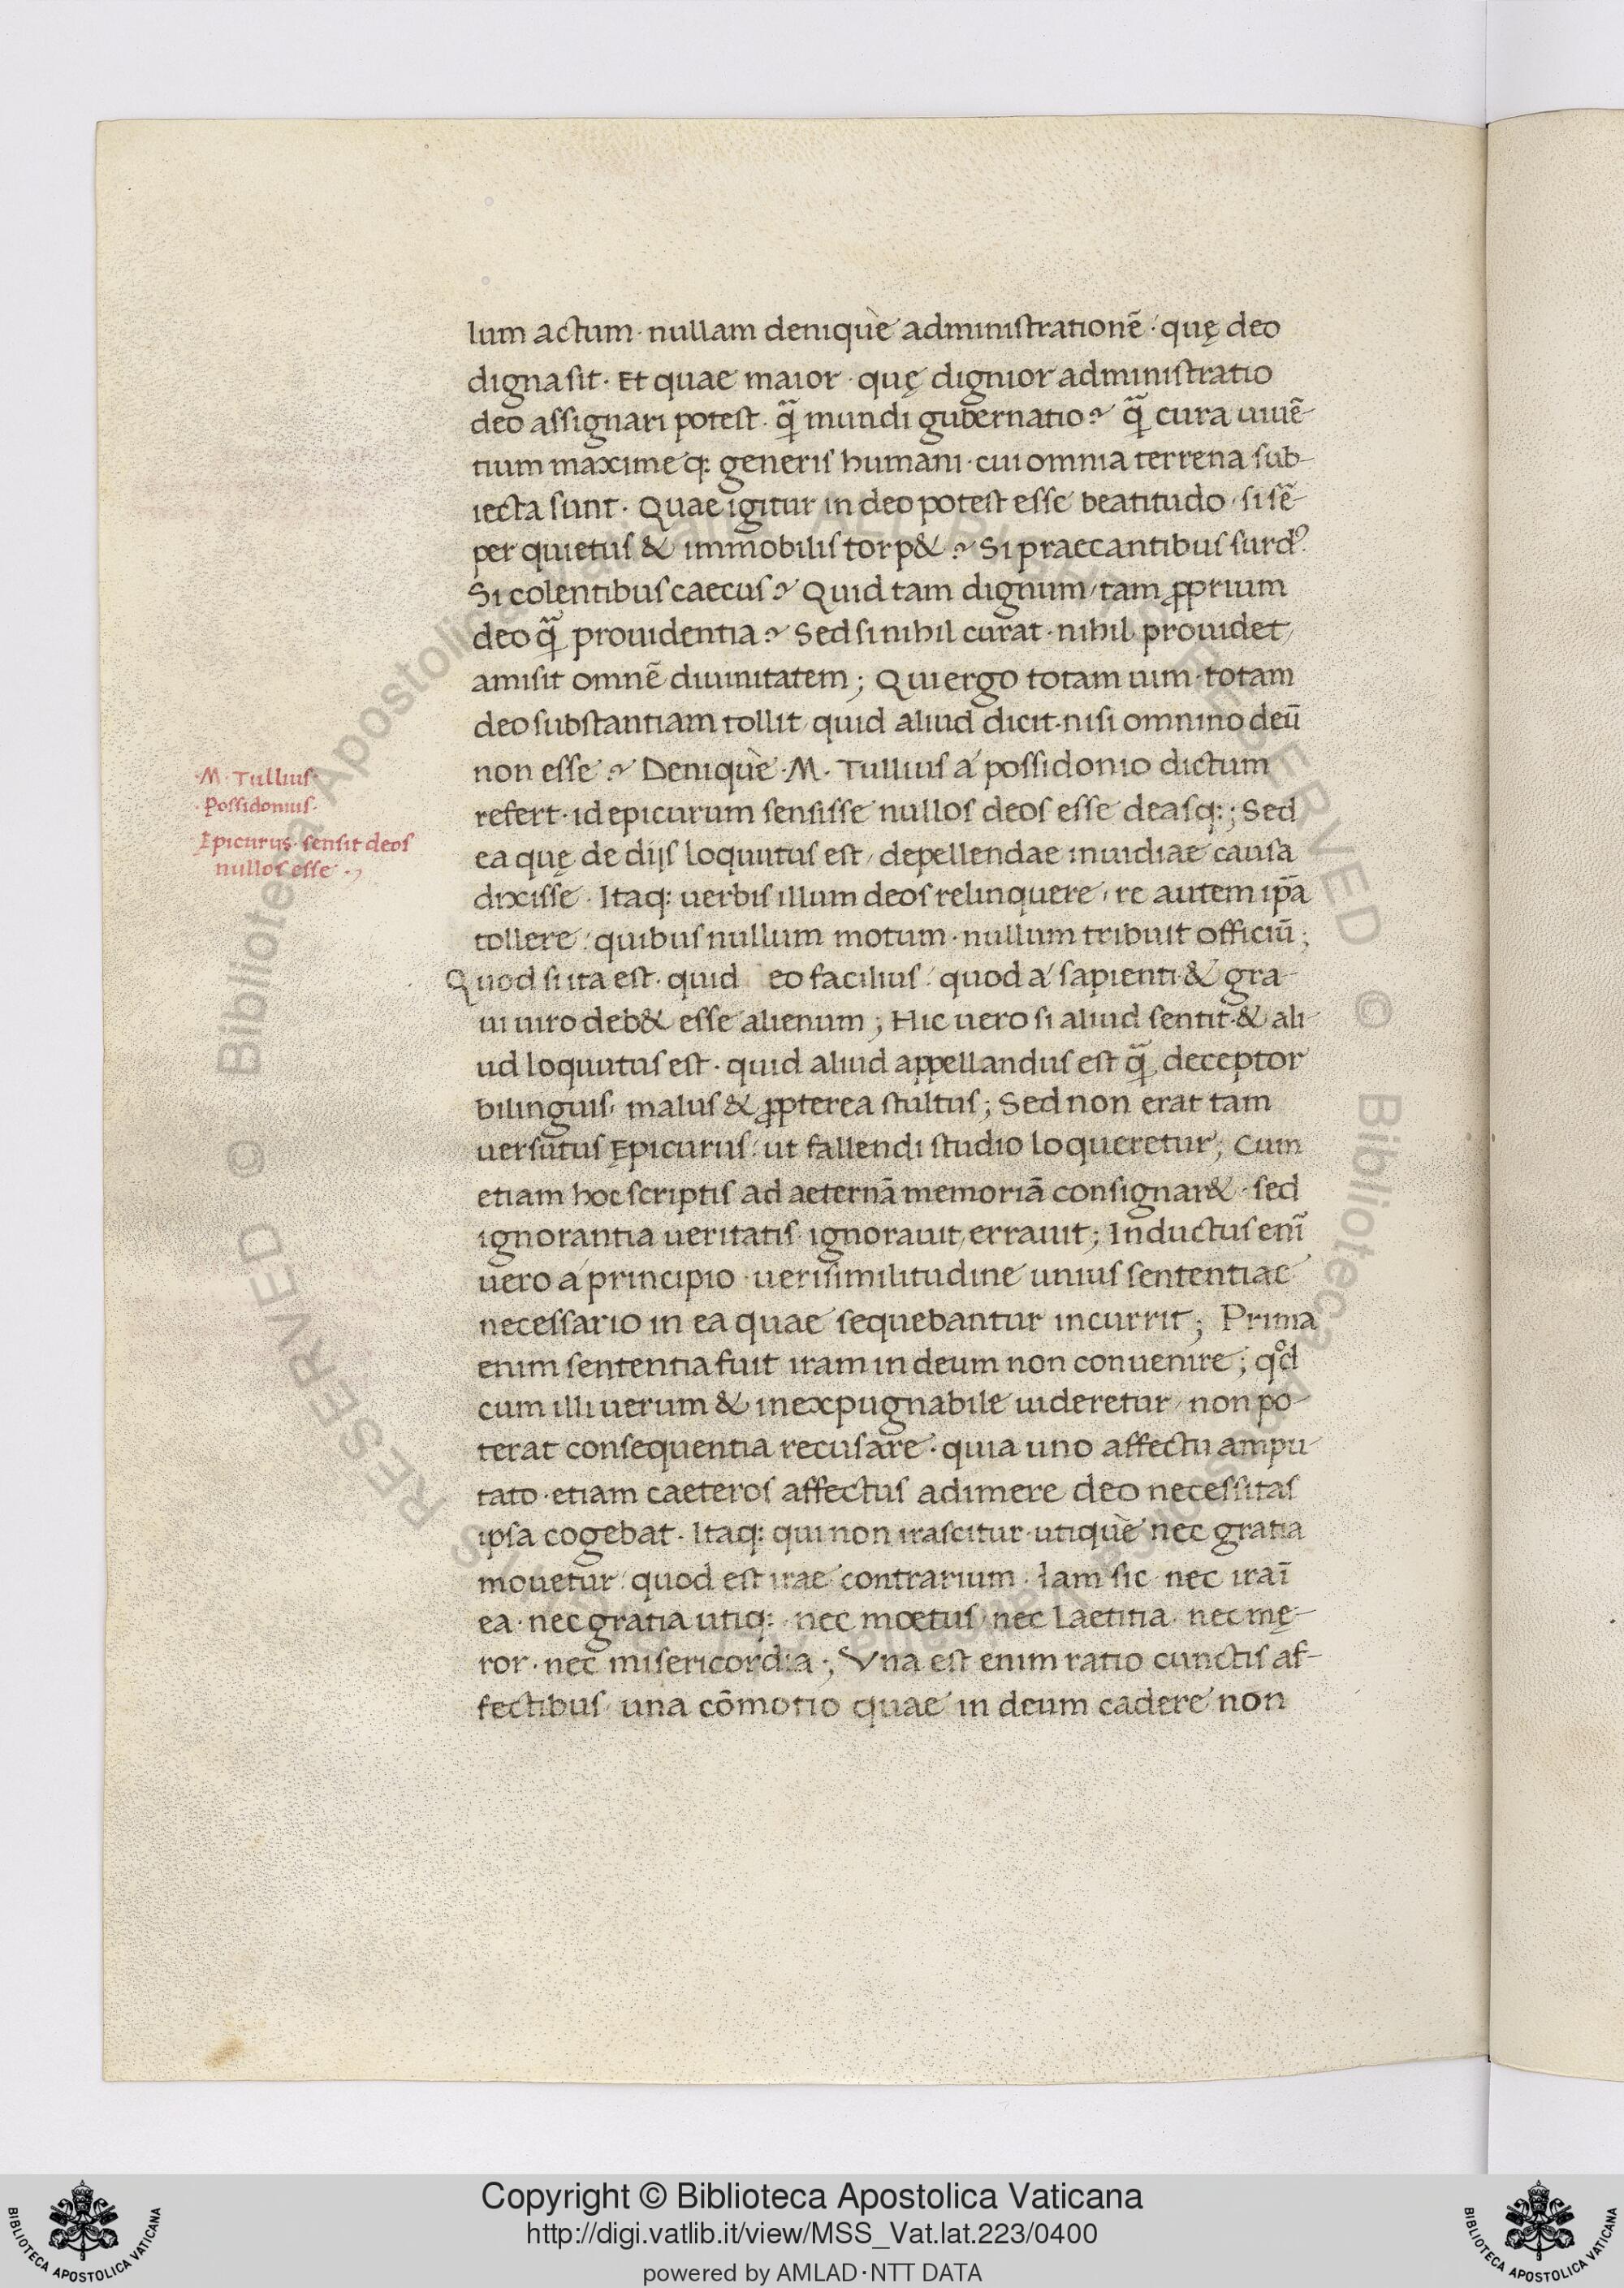 lum actum · nullam deniquè administrationē · quę deo
digna sit · Et quae maior · quę dignior administratio
deo assignari potest · q̃ mundi gubernatio? q̃ cura uiuē-
tium maxime q: generis humani · cui omnia terrena sub-
iecta sunt · Quae igitur in deo potest esse beatitudo / si sē-
per quietus & immobilis torp& ? Si praecantibus surdꝰ?
Si colentibus caecus? Quid tam dignum / tam ꝓprium
deo q̃ prouidentia? Sed si nihil curat · nihil prouidet /
amisit omnē diuinitatem ; Qui ergo totam uim · totam
deo substantiam tollit / quid aliud dicit · nisi omnino deū
non esse ? Deniquè · M · Tullius á possidonio dictum
refert · id epicurum sensisse nullos deos esse deasq: ; Sed
ea quę de dijs loquutus est / depellendae inuidiae causa
dixisse · Itaq: uerbis illum deos relinquere / re autem ip̄a
tollere / quibus nullum motum · nullum tribuit officiū ;
Quod si ita est · quid eo facilius / quod á sapienti & gra-
ui uiro deb& esse alienum ; Hic uero si aliud sentit · & ali-
ud loquutus est · quid aliud appellandus est q̃ deceptor
bilinguis / malus & ꝓpterea stultus ; Sed non erat tam
uersutus Epicurus / ut fallendi studio loqueretur ; Cum
etiam hoc scriptis ad aeternā memoriā consignar& · sed
ignorantia ueritatis ignorauit / errauit ; Inductus enī
uero á principio · uerisimilitudine unius sententiae
necessario in ea quae sequebantur incurrit ; Prima
enim sententia fuit iram in deum non conuenire ; qd̊
cum illi uerum & inexpugnabile uideretur / non po-
terat consequentia recusare · quia uno affectu ampu-
tato · etiam caeteros affectus adimere deo necessitas
ipsa cogebat · Itaq: qui non irascitur · utiquè nec gratia
mouetur / quod est irae contrarium · Iam sic nec iraī
ea · nec gratia utiq: · nec mœtus / nec laetitia · nec mę-
ror · nec misericordia ; Vna est enim ratio cunctis af-
fectibus / una cōmotio quae in deum cadere non
· M · Tullius ·
· Possidonius ·
Epicurus · sensit deos
nullos esse ·,
© Biblioteca Apostolica
RESERVED
RESERVED © Biblioteca
BIBLIOTECA APOSTOLICA VATICANA
Copyright © Biblioteca Apostolica Vaticana
http://digi.vatlib.it/view/MSS_Vat.lat.223/0400
powered by AMLAD·NTT DATA
BIBLIOTECA APOSTOLICA VATICANA